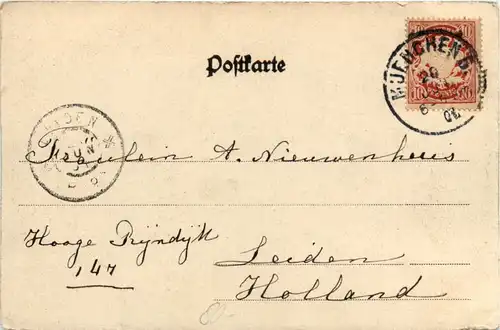 Postkarte
MUENCHEN
Fräulein A. Nieuwenhuis
Hooge Rijndijk
147
Leiden
Holland